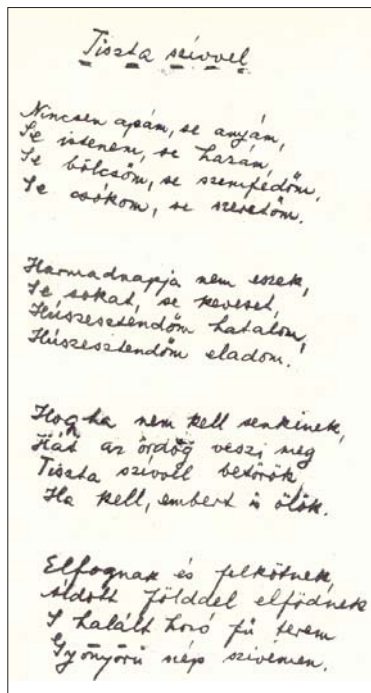 Tiszta szívvel
Nincsen apám, se anyám,
Se istenem, se hazám,
Se bölcsőm, se szemfedőm,
Se csókom, se szeretőm.
Harmadnapja nem eszek,
Se sokat, se keveset,
Húszesztendőm hatalom,
Húszesztendőm eladom.
Hogyha nem kell senkinek,
Hát az ördög veszi meg
Tiszta szívvell betörök,
Ha kell, embert is ölök.
Elfognak és felkötnek,
Áldott földdel elfödnek
S halált hozó fű terem
Gyönyörű szép szívemen.